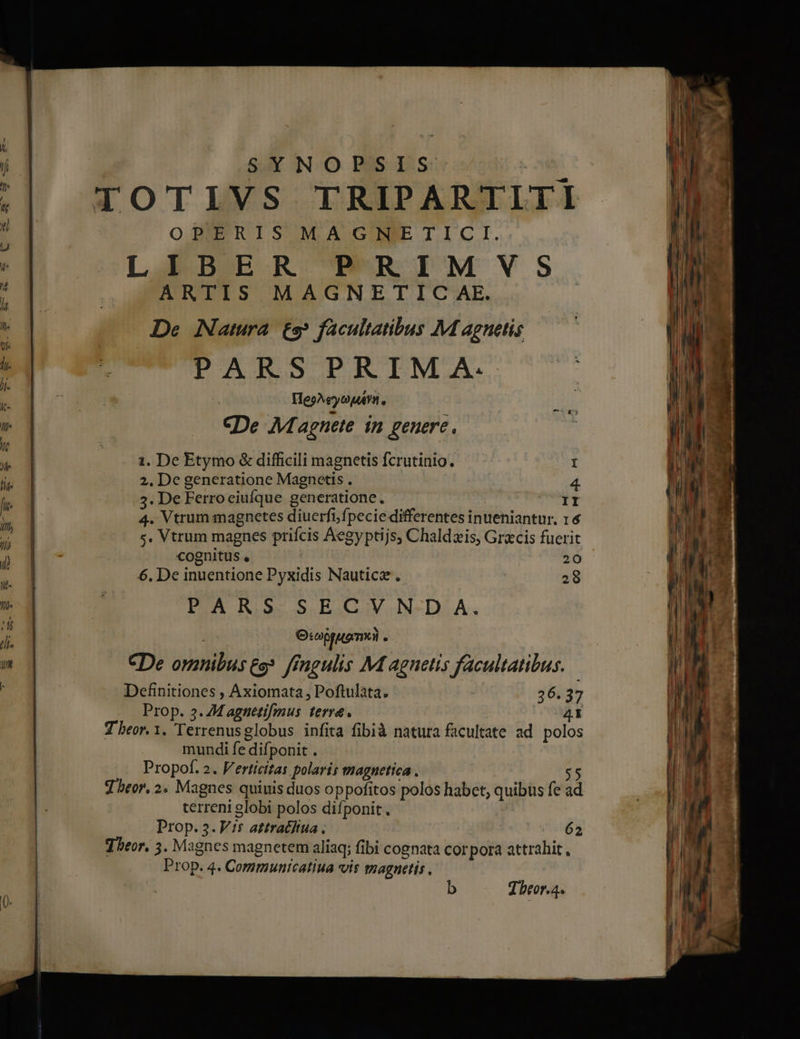 SYNOPSIS
TOTIVS TRIPARTITI
OPERIS MAGNETICI.
LIBER PRIMVS
ARTIS MAGNETICAE.
De Natura & facultatibus Magnetis
PARS PRIMA.
Περλεγωμένη.
De Magnete in genere.
1. De Etymo & difficili magnetis ſcrutinio. 1
2. De generatione Magnetis. 4
3. De Ferro eiuſque generatione. 11
4. Vtrum magnetes diuerſi, ſpecie differentes inueniantur. 16
5. Vtrum magnes priſcis Aegyptijs, Chaldæis, Græcis fuerit
cognitus. 20
6. De inuentione Pyxidis Nauticæ. 28
PARS SECVNDA.
De omnibus & ſingulis Magnetis facultatibus.
Definitiones, Axiomata, Poſtulata. 36.37
Prop. 3. Magnetiſmus terræ. 41
Theor. 1. Terrenus globus inſita ſibià natura facultate ad polos
mundi ſe diſponit.
Propoſ. 2. Verticitas polaris magnetica. 55
Theor. 2. Magnes quiuis duos oppoſitos polos habet, quibus ſe ad
terreni globi polos diſponit.
Prop. 3. Vis attractiua. 62
Theor. 3. Magnes magnetem aliaq; ſibi cognata corpora attrahit.
Prop. 4. Communicatiua vis magnetis.
b Theor.4.